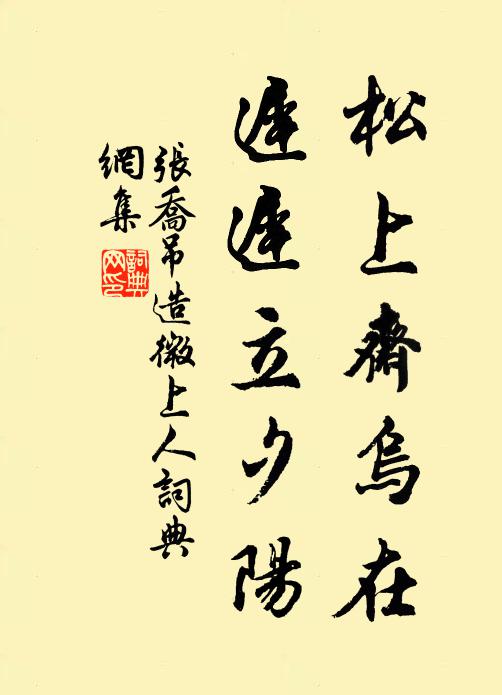 松上齋烏在
遲遲立夕陽
張喬吊造微上人詞典
網集
詞典網印